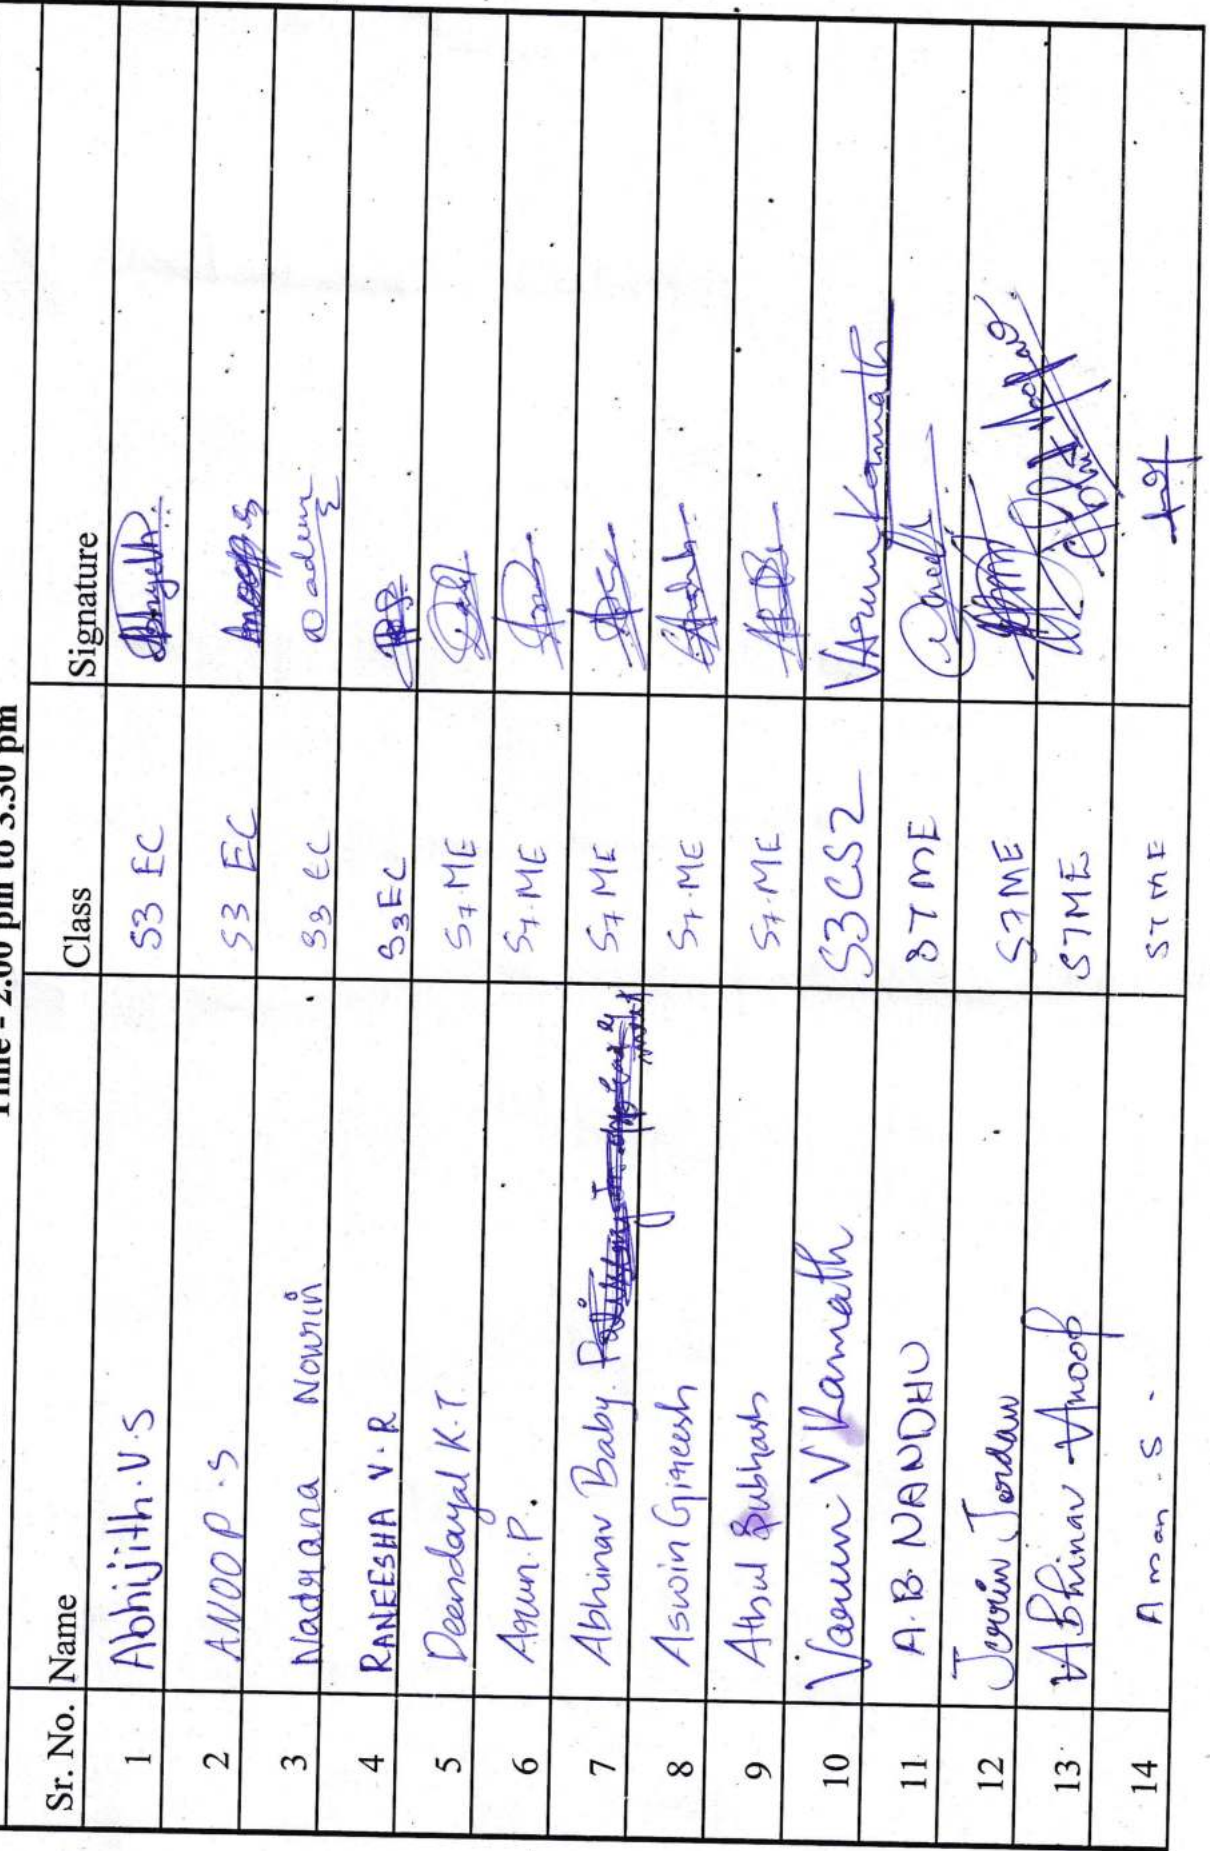 Time - 2.00 pm to 3.30 pm
Sr. No. Name Class Signature
1 Abhijith.V.S S3 EC
2 ANOOP.S S3 EC Anoop.S
3 Nadrana Nowrin S3 EC
4 RANEESHA V.R S3 EC
5 Deendayal K.T S7.ME
6 Arun.P. S7.ME
7 Abhinav Baby. S7 ME
8 Aswin Gireesh S7.ME
9 Athul Subhash S7.ME
10 Varun V Kamath S3 CS2 Varun Kamath
11 A.B. NANDHU S7 ME
12 Jerin Jordan S7ME
13 Abhinav Anoop S7ME
14 Aman.S. S7 ME